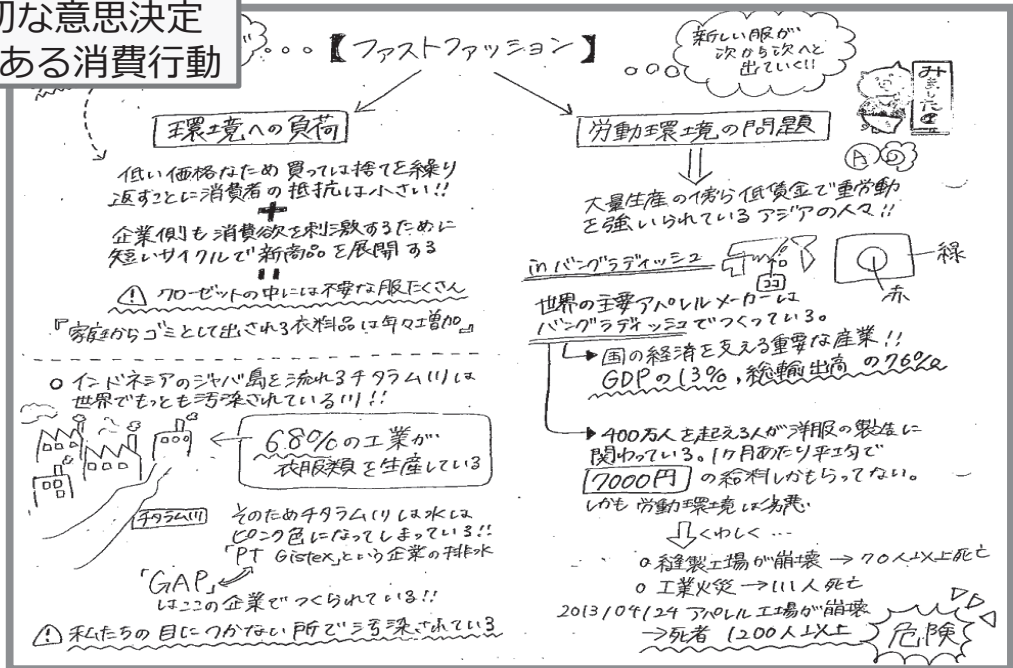 切な意思決定
ある消費行動
【ファストファッション】
新しい服が
次から次へと
出ていく!!
みました
環境への負荷
低い価格なため買っては捨てを繰り
返すことに消費者の抵抗は小さい!!
+
企業側も消費欲を刺激するために
短いサイクルで新商品を展開する
=
クローゼットの中には不要な服たくさん
『家庭からゴミとして出される衣料品は年々増加』
○ インドネシアのジャバ島を流れるチタラム川は
世界でもっとも汚染されている川!!
68%の工業が
衣服類を生産している
チタラム川
そのためチタラム川は水は
ピンク色になってしまっている!!
「PT Gistex」という企業の排水
「GAP」
はここの企業でつくられている!!
私たちの目につかない所で汚染されている
労働環境の問題
A
大量生産の傍ら低賃金で重労働
を強いられているアジアの人々!!
in バングラディッシュ
ココ
緑
赤
世界の主要アパレルメーカーは
バングラディッシュでつくっている。
国の経済を支える重要な産業!!
GDPの13%,総輸出高の76%
400万人を起える人が洋服の製造に
関わっている。1ヶ月あたり平均で
7000円の給料しかもらってない。
しかも労働環境は劣悪
くわしく…
○ 縫製工場が崩壊→70人以上死亡
○ 工業火災→111人死亡
2013/04/24 アパレル工場が崩壊
→死者 1200人以上
危険